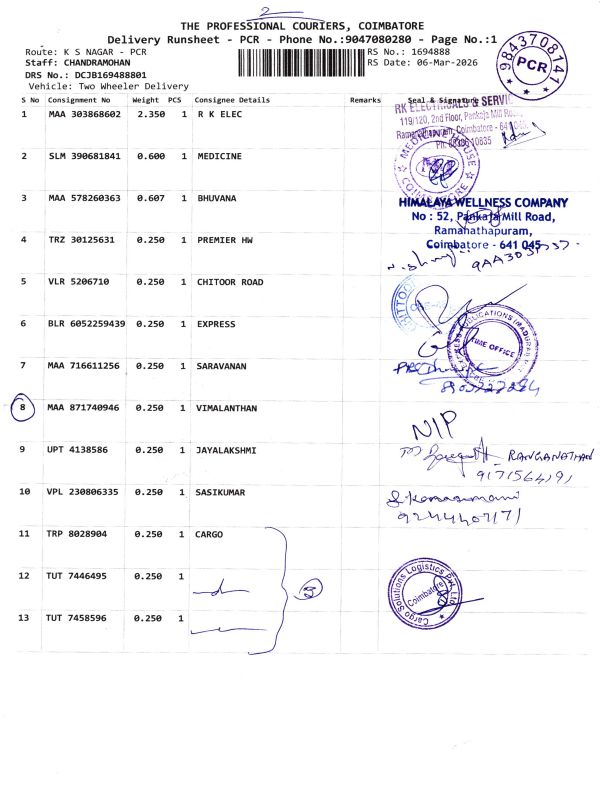 2
THE PROFESSIONAL COURIERS, COIMBATORE
Delivery Runsheet - PCR - Phone No.:9047080280 - Page No.:1
Route: K S NAGAR - PCR
RS No.: 1694888
Staff: CHANDRAMOHAN
RS Date: 06-Mar-2026
DRS No.: DCJB169488801
Vehicle: Two Wheeler Delivery
9843708141
PCR
S No Consignment No Weight PCS Consignee Details Remarks Seal & Signature
1 MAA 303868602 2.350 1 R K ELEC
RK ELECTRICALS & SERVIC
119/120, 2nd Floor, Pankaja Mill Road
Coimbatore - 641
2 SLM 390681841 0.600 1 MEDICINE
MEDICINE HOUSE
COIMBATORE
3 MAA 578260363 0.607 1 BHUVANA
HIMALAYA WELLNESS COMPANY
No : 52, Pankaja Mill Road,
Ramanathapuram,
Coimbatore - 641 045
4 TRZ 30125631 0.250 1 PREMIER HW
5 VLR 5206710 0.250 1 CHITOOR ROAD
6 BLR 6052259439 0.250 1 EXPRESS
TIME OFFICE
7 MAA 716611256 0.250 1 SARAVANAN
8 MAA 871740946 0.250 1 VIMALANTHAN
NIP
9 UPT 4138586 0.250 1 JAYALAKSHMI
RANGANATHAN
10 VPL 230806335 0.250 1 SASIKUMAR
11 TRP 8028904 0.250 1 CARGO
12 TUT 7446495 0.250 1
3
Cargo Solutions Logistics Pvt. Ltd
Coimbatore
13 TUT 7458596 0.250 1